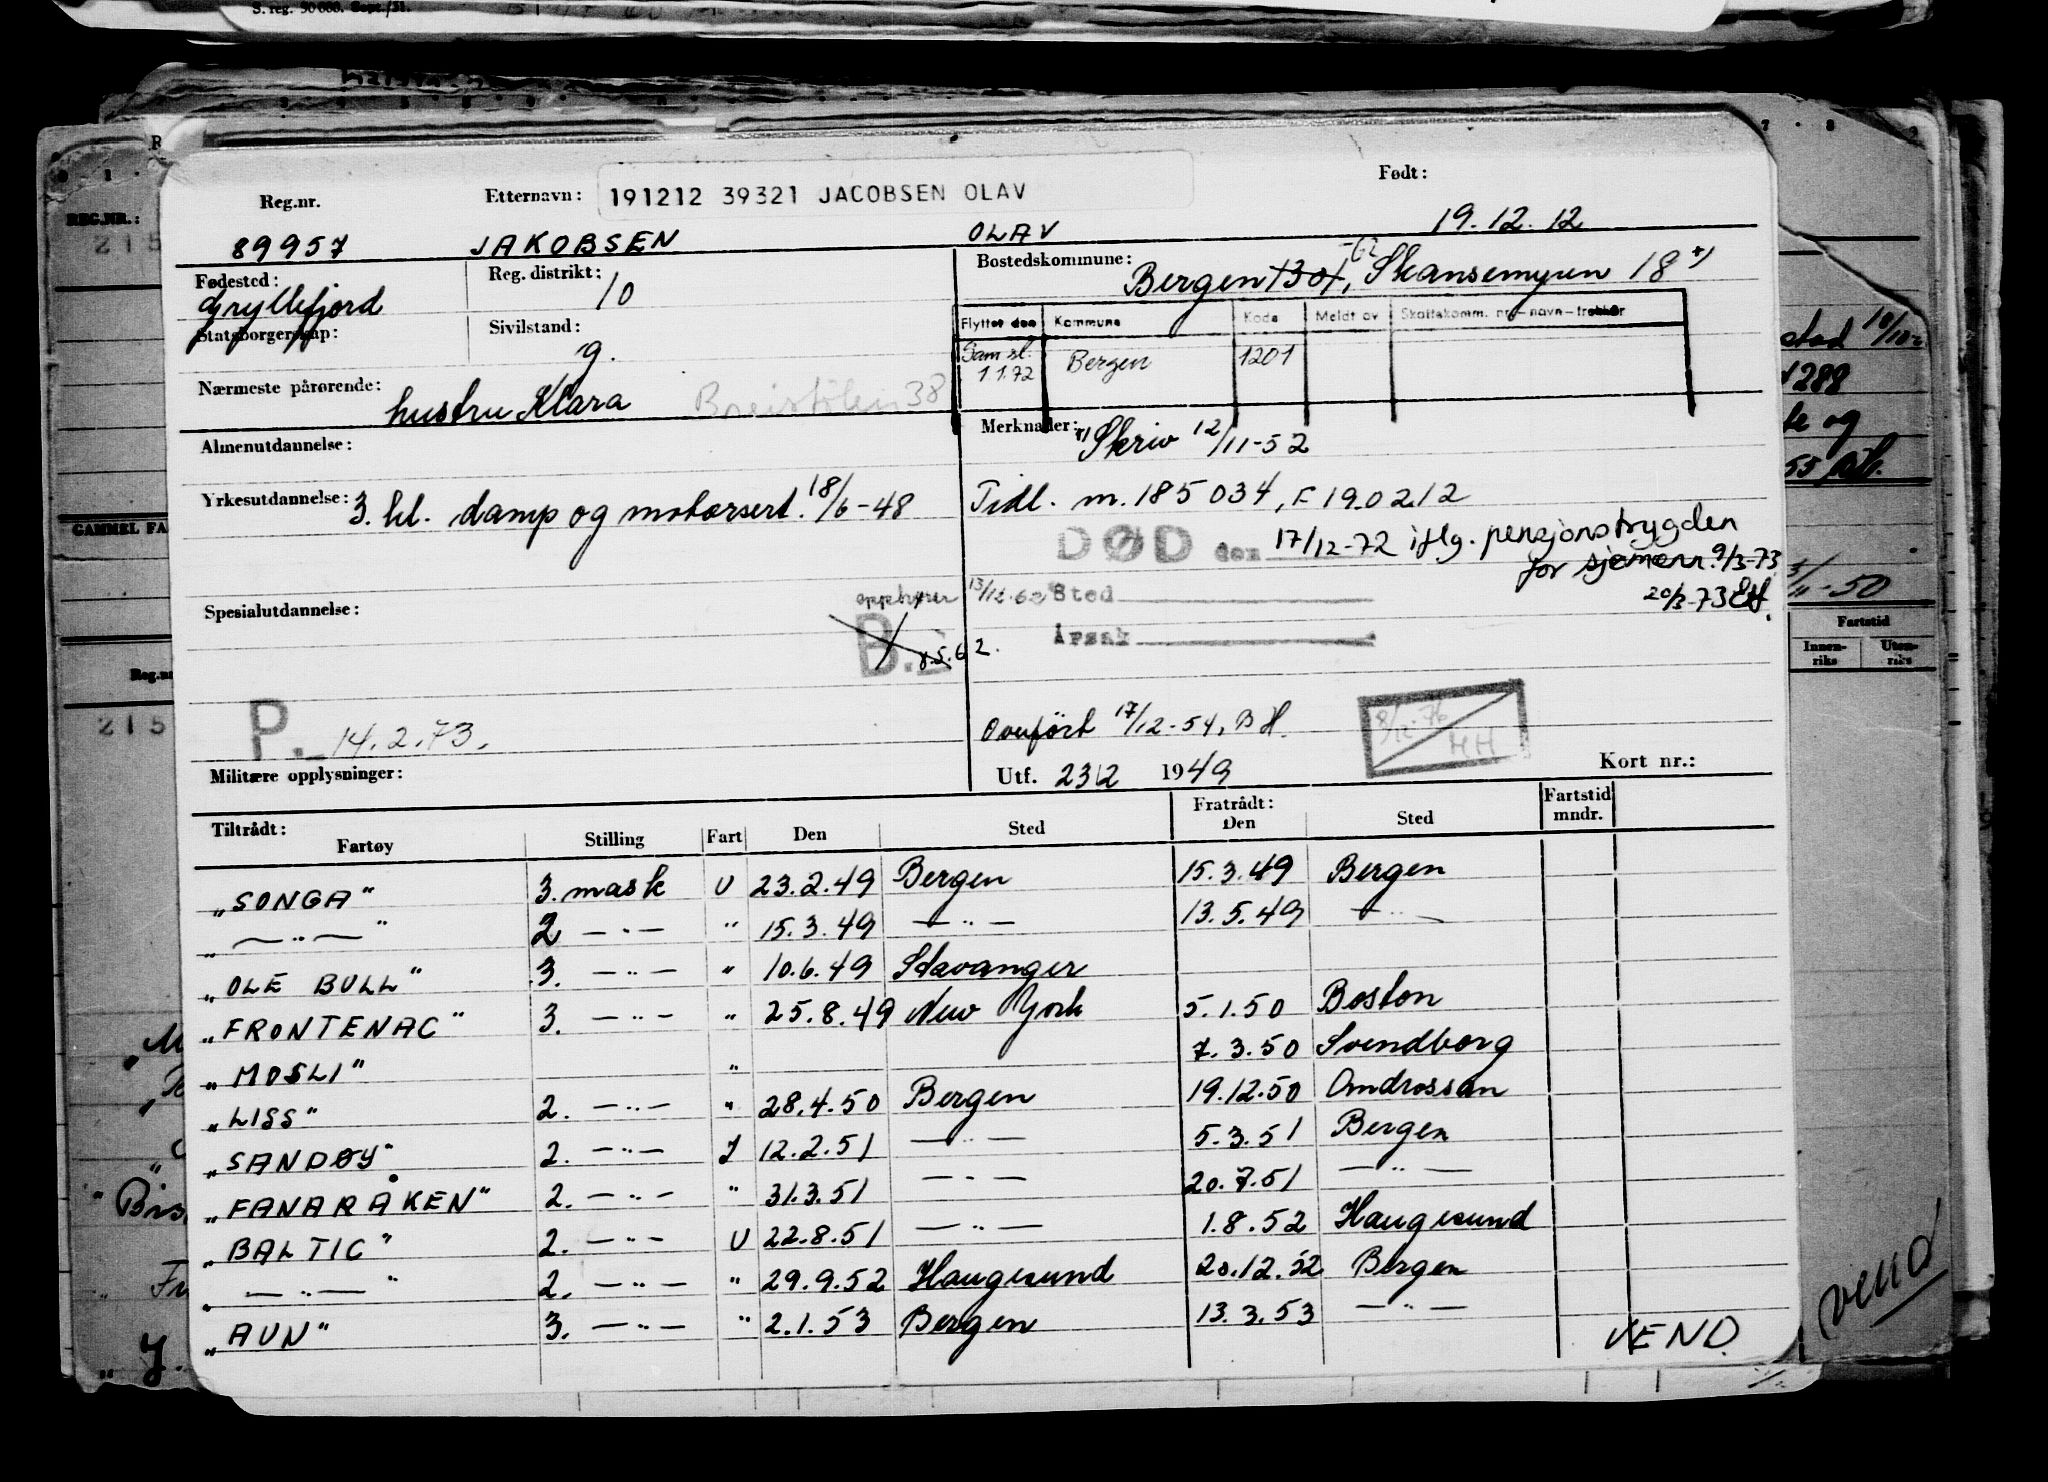 S. reg. 50 000. Sept. /51.
Reg.nr. Etternavn: 191212 39321 JACOBSEN OLAV Født:
89957 JAKOBSEN OLAV 19.12.12
Fødested: Gryllefjord Reg. distrikt: 10 Bostedskommune: Bergen 1301, Skansemyren 18 x)
Statsborgerskap: Sivilstand: g.
Flyttet den Kommune Kode Meldt av Skattekomm. nr.-navn-trekkår
Sam sl. 1 1.72 Bergen 1201
Nærmeste pårørende: hustru Klara Breistølen 38
Almenutdannelse:
Merknader: x) Skriv 12/11-52
Yrkesutdannelse: 3. kl. damp og motorsert. 18/6-48
Tidl. m. 185034, F 19.02.12
DØD den 17/12-72 iflg. pensjonstrygden
for sjømenn 9/3-73
20/3-73 EH.
Spesialutdannelse:
opphører 13/12.62
Sted
B.I 8.5.62.
Årsak
P. 14.2.73.
Overført 17/12-54, BH.
8/12-76 HH
Militære opplysninger:
Utf. 23/2 1949 Kort nr.:
Tiltrådt: Fratrådt:
Fartøy Stilling Fart Den Sted Den Sted Fartstid mndr.
"SONGA" 3. mask U 23.2.49 Bergen 15.3.49 Bergen
" — " — " 2 — " — " 15.3.49 — " — 13.5.49 — " —
"OLE BULL" 3. — " — " 10.6.49 Stavanger
"FRONTENAC" 3. — " — " 25.8.49 New York 5.1.50 Boston
"MOSLI" " 7.3.50 Svendborg
"LISS" 2. — " — " 28.4.50 Bergen 19.12.50 Omdrossan
"SANDØY" 2. — " — I 12.2.51 — " — 5.3.51 Bergen
"FANARÅKEN" 2. — " — " 31.3.51 — " — 20.7.51 — " —
"BALTIC" 2. — " — U 22.8.51 — " — 1.8.52 Haugesund
" — " — " 2. — " — " 29.9.52 Haugesund 20.12.52 Bergen
"AUN" 3. — " — " 2.1.53 Bergen 13.3.53 — " —
VEND.
REG.NR.:
215
GAMMEL FA
Reg.nr
215
288
50
Fartstid
Innen-riks Uten-riks
vend